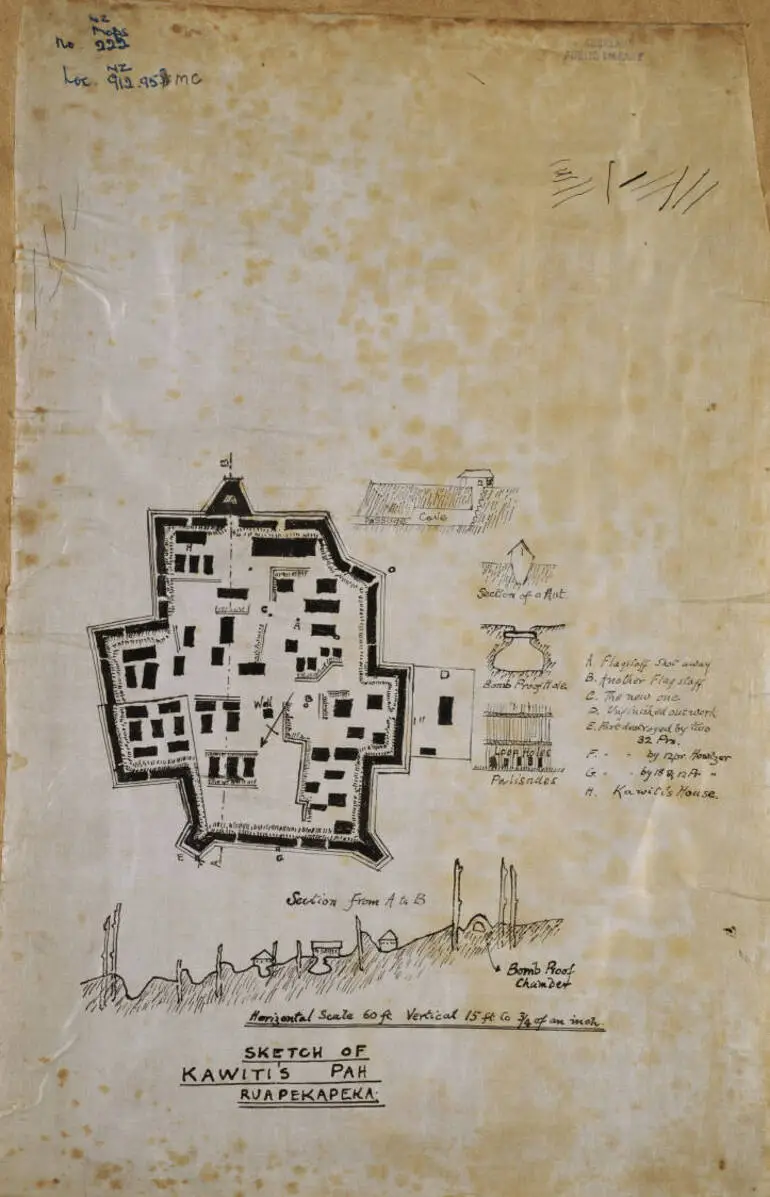 NZ
Maps
No 222
NZ
Loc. 912.95 MC
PUBLIC LIBRARY
B
Passage Cave
H
Section of a Hut
C
A
Bomb Proof Hole
D
Well
B
Loop Holes
Palisades
A Flagstaff Shot away
B. Another Flagstaff
C. The new one
D. Unfinished outwork
E. Part destroyed by two
32 Prs.
F. " " by 12pr. Howitzer
G " " by 18 & 12 Pr "
H. Kawiti's House.
E
A
G
Section from A to B
Bomb Proof
Chamber
Horizontal Scale 60 ft Vertical 15 ft to 3/4 of an inch.
SKETCH OF
KAWITI'S PAH
RUAPEKAPEKA.